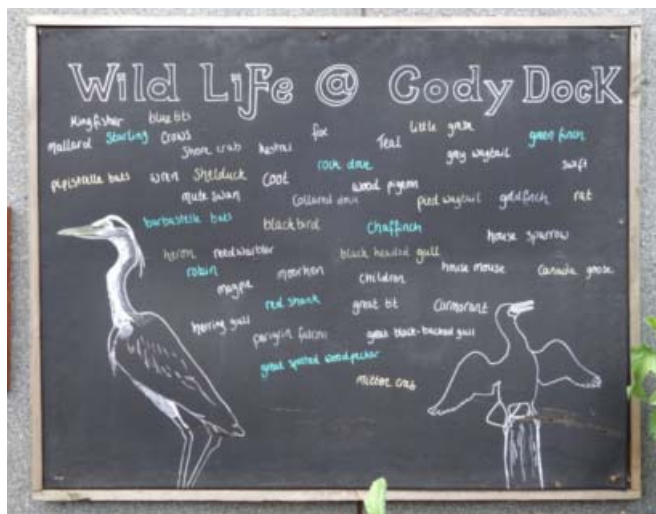 Wild Life @ Cody Dock
Kingfisher blue tits
mallard Starling Crows fox Teal little grebe green finch
Shore crab kestral grey wagtail swift
pipistrelle bats wren Shelduck Coot rock dove wood pigeon
mute swan Collared dove pied wagtail goldfinch rat
barbastelle bats blackbird Chaffinch house sparrow
heron reed warbler black headed gull
robin magpie moorhen children house mouse Canada goose
red shank great tit Cormorant
herring gull perigrin falcon great black-backed gull
great spotted woodpecker
mitten crab